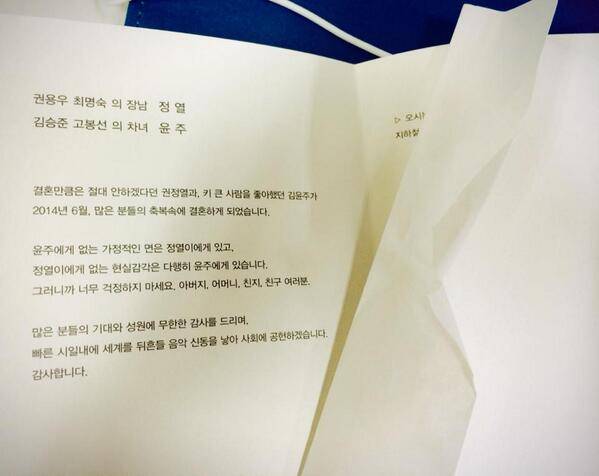 권용우 최명숙 의 장남 정 열
김승준 고봉선 의 차녀 윤 주
결혼만큼은 절대 안하겠다던 권정열과, 키 큰 사람을 좋아했던 김윤주가
2014년 6월, 많은 분들의 축복속에 결혼하게 되었습니다.
윤주에게 없는 가정적인 면은 정열이에게 있고,
정열이에게 없는 현실감각은 다행히 윤주에게 있습니다.
그러니까 너무 걱정하지 마세요, 아버지, 어머니, 친지, 친구 여러분.
많은 분들의 기대와 성원에 무한한 감사를 드리며,
빠른 시일내에 세계를 뒤흔들 음악 신동을 낳아 사회에 공헌하겠습니다.
감사합니다.
▷ 오시
지하철